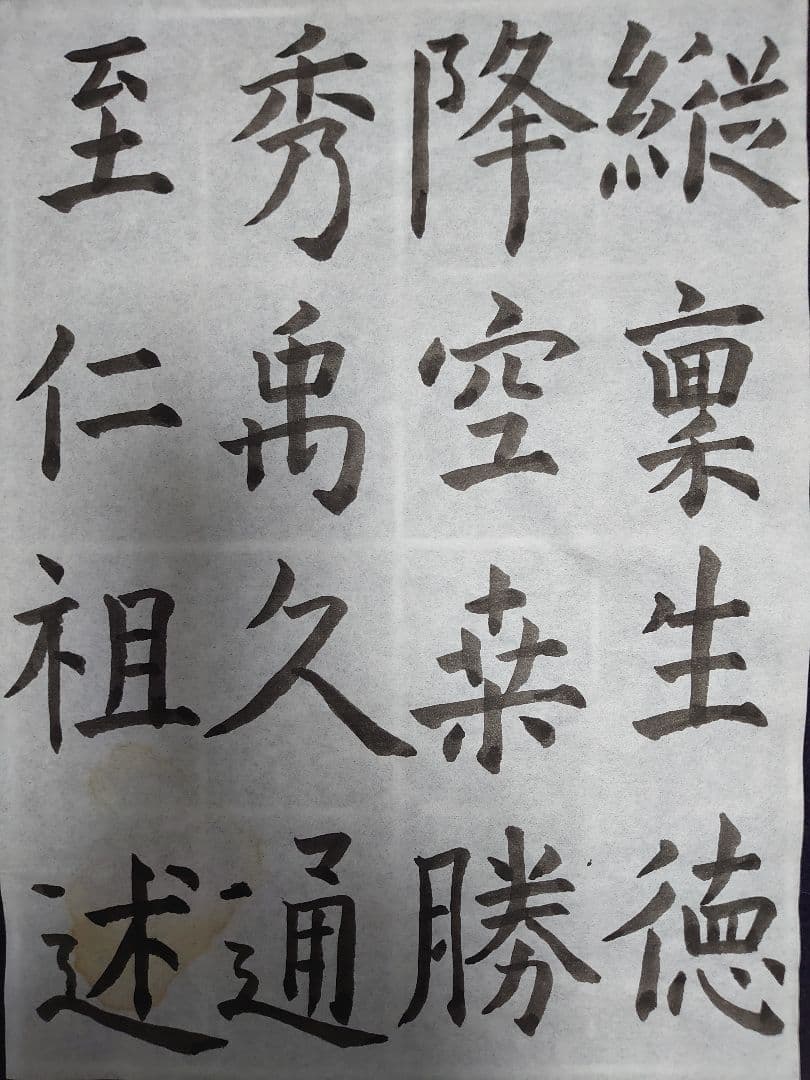 縦稟生徳
降空桒勝
秀禹久通
至仁祖述